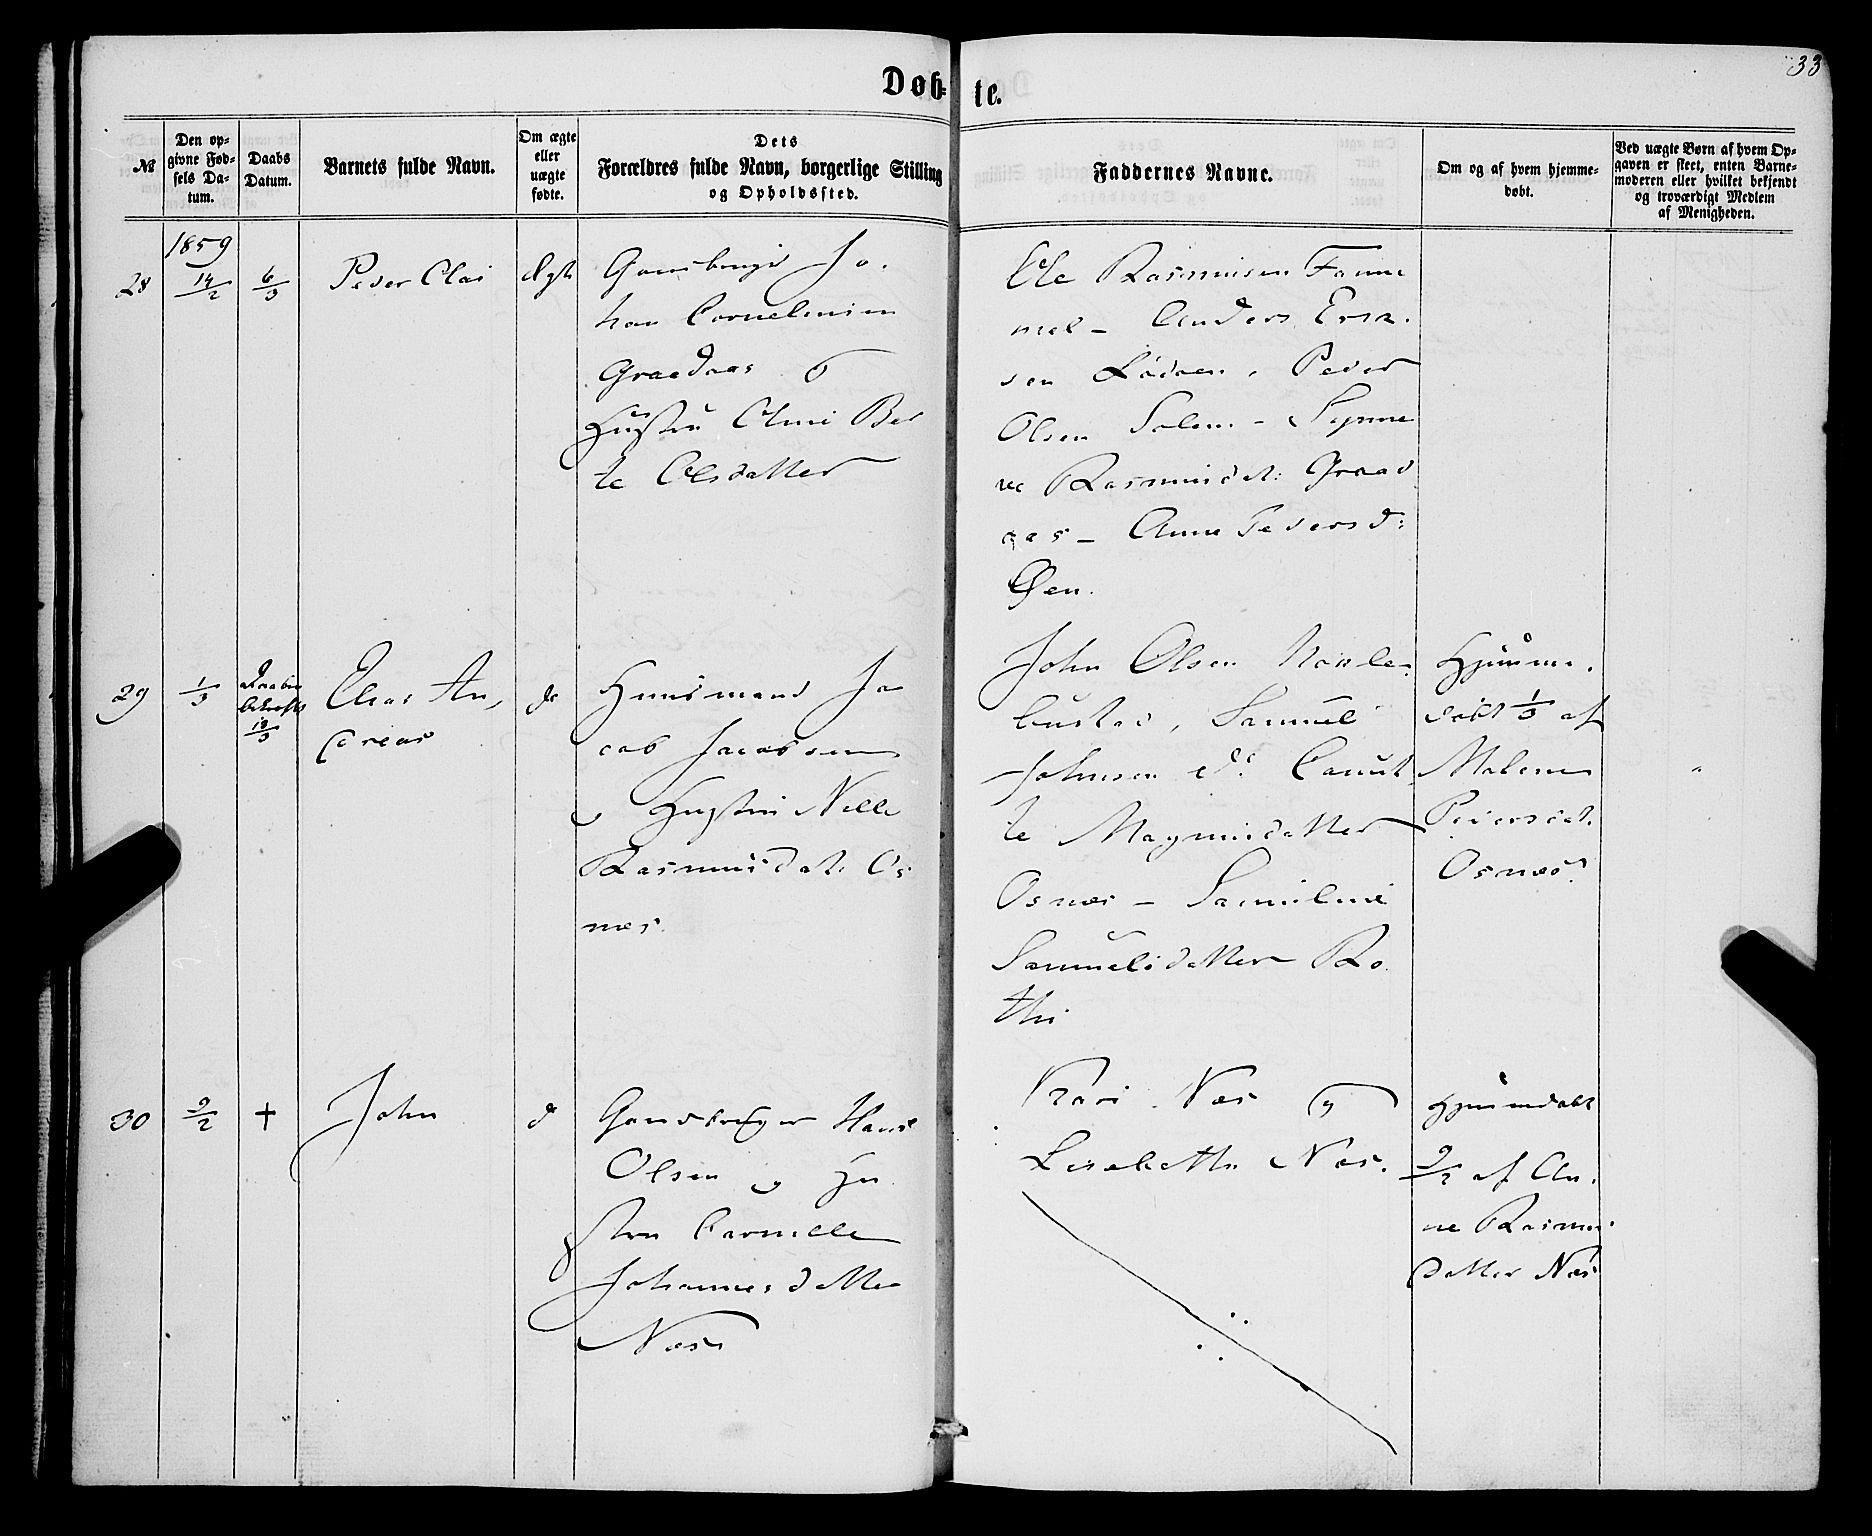 33
Døb- te.
№
Den op-
givne Fød-
sels Da-
tum.
Daabs
Datum.
Barnets fulde Navn.
Om ægte
eller
uægte
fødte.
Dets
Forældres fulde Navn, borgerlige Stilling
og Opholdssted.
Faddernes Navne.
Om og af hvem hjemme-
døbt.
Ved uægte Børn af hvem Op-
gaven er skeet, enten Barne-
moderen eller hvilket bekjendt
og troværdigt Medlem
af Menigheden.
1859
28
14/2
6/3
Peder Elai
Ægte
Jo.
han Cornelius
Graadaas
Hustru Oline Ber
te Olsdatter
Ole Rasmusen
Anders
sen Peder
Olsen Solem - Synne
ve Rasmusdat: Graad
aas - Anne Pedersd:
Øen.
29
1/3
Daaben
13/3
Elias An,
dreas
do
Huusmand Ja
cob Jacobsen
og Hustru Nille
Rasmusdat. Os
næs.
John Olsen
bustad, Samuel
Johnsen
te Magnusdatter
Osnæs - Samuline
Samuelsdatter Ro
thi
Hjemme.
døbt 1/3 af
Malene
Peiersdt.
Osnæs.
30
9/2
+
John
d
Gaardbruger Hans
Olsen og Hu
stru Cornelle
Johannesdatter
Næss
Kari Næs og
Lisebethe Næs.
Hjemmdøbt
9/2 af An.
ne Rasmus
datter Næs